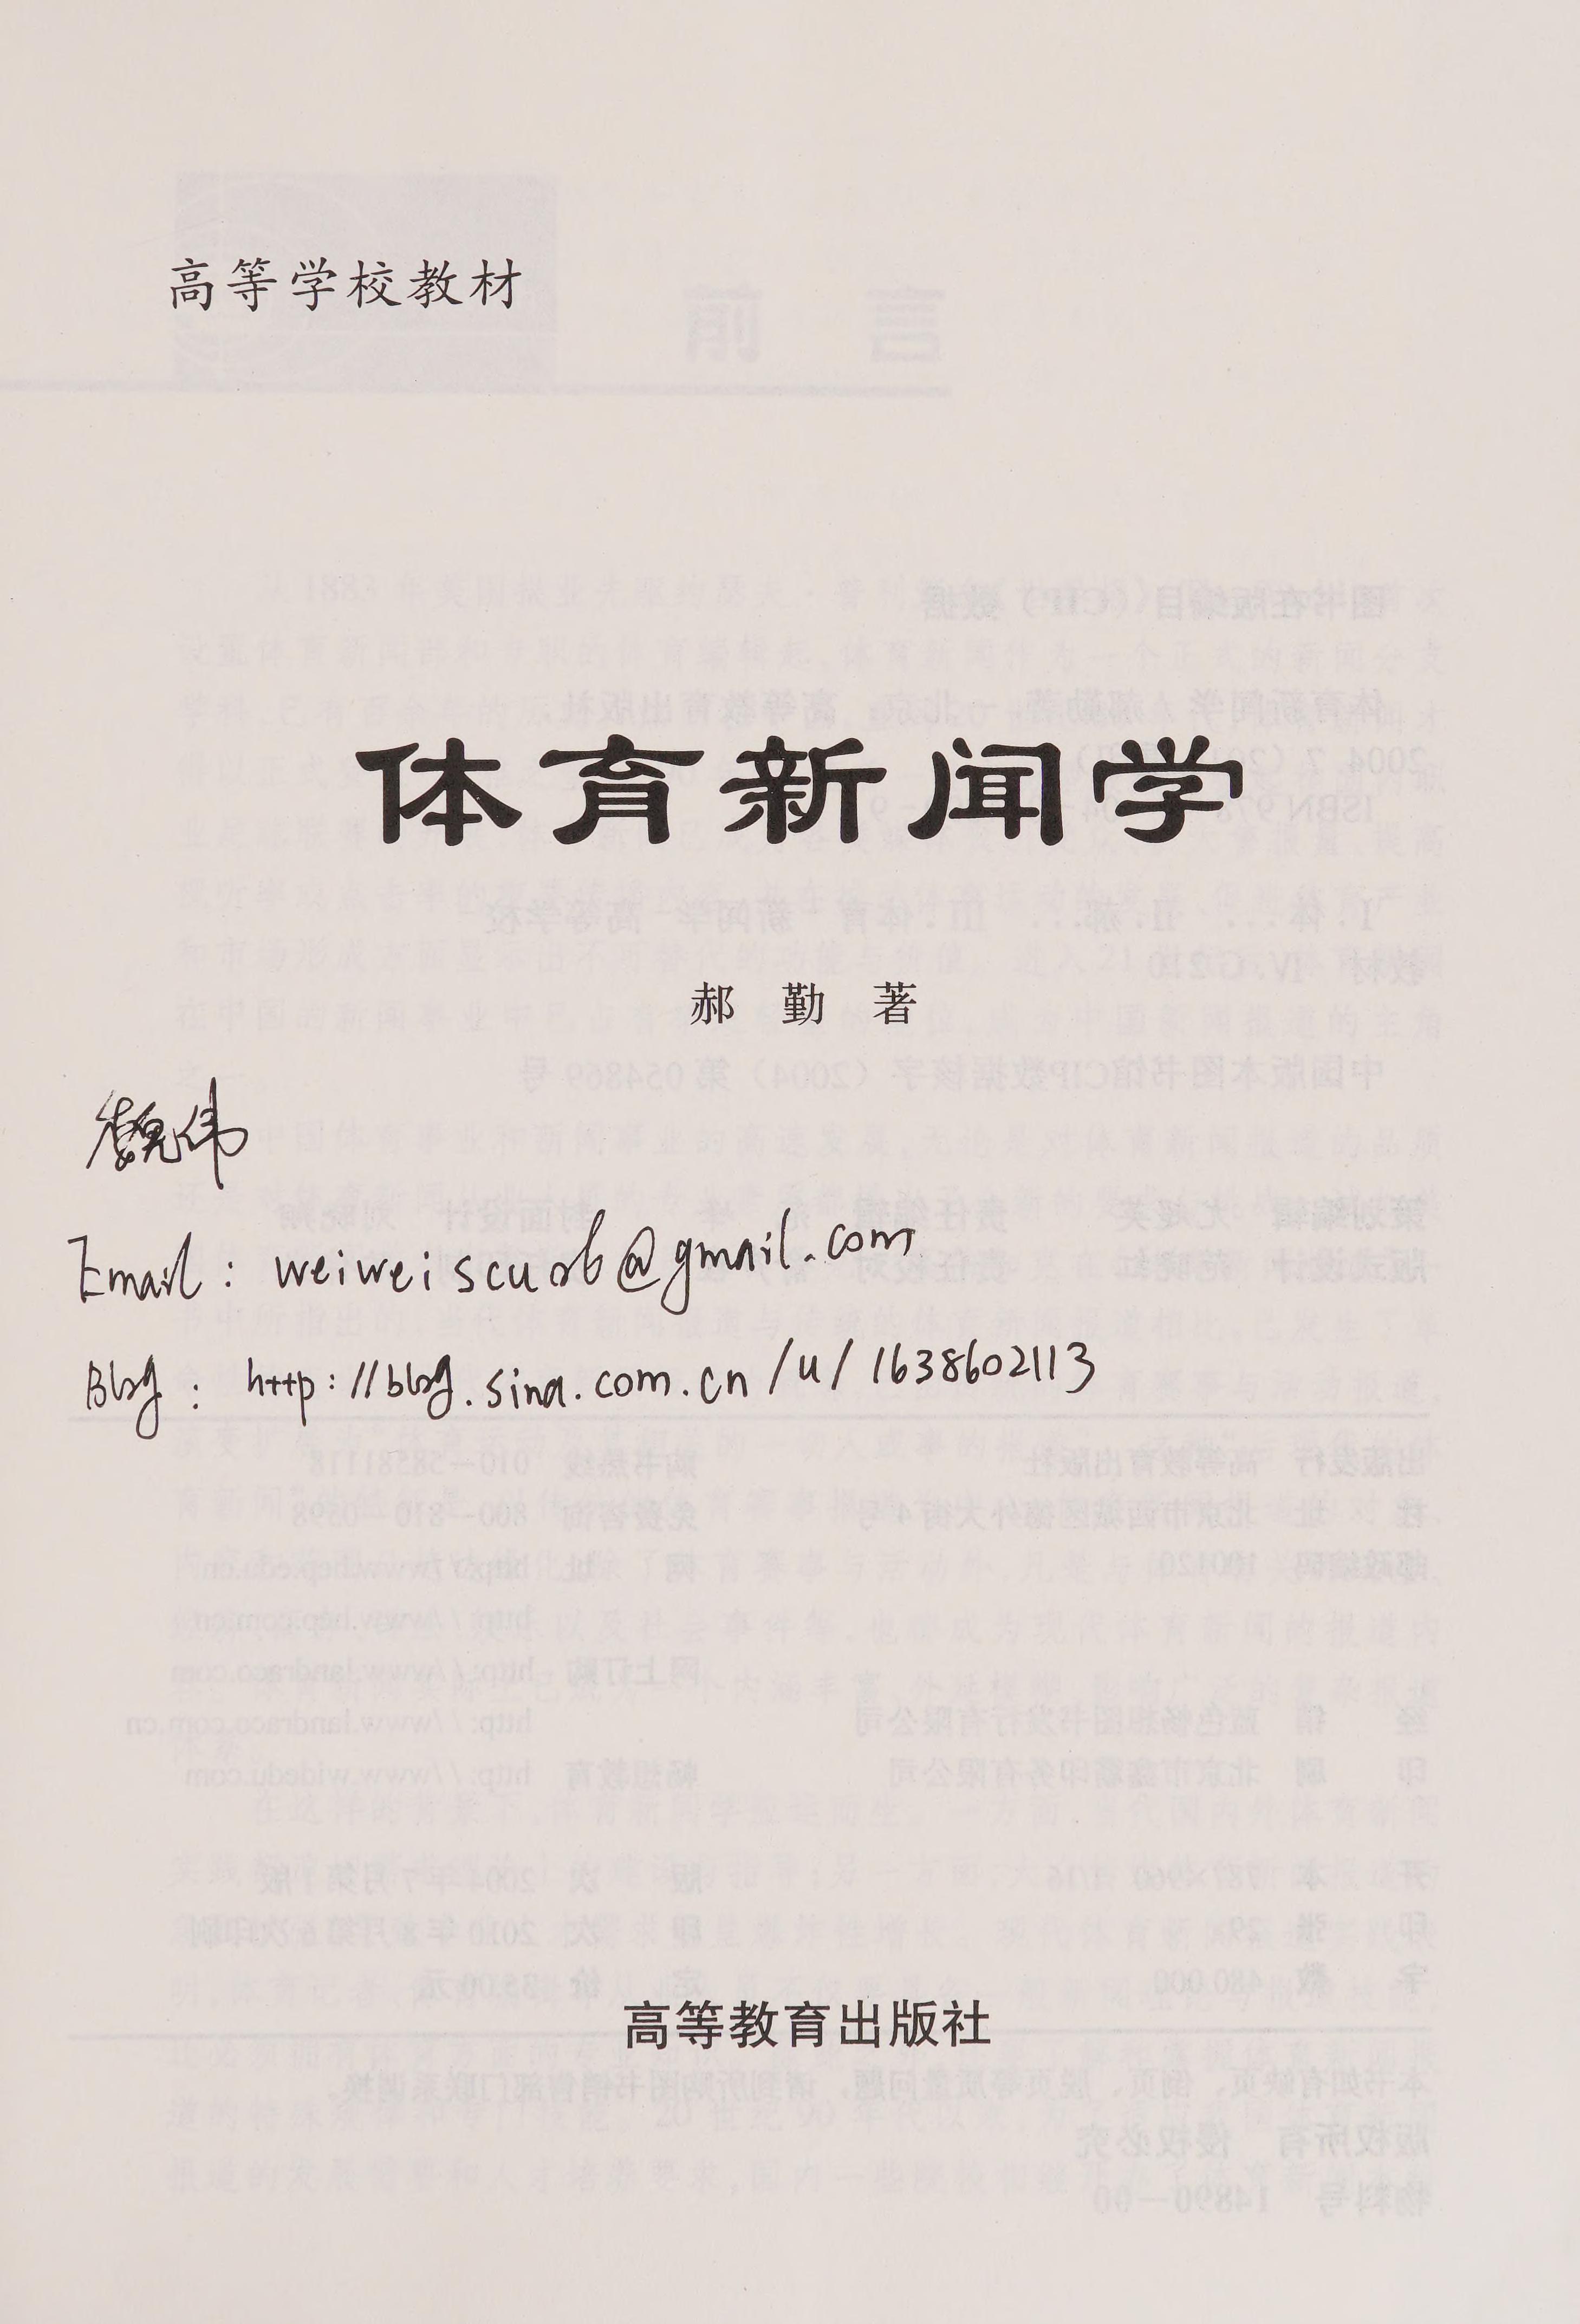 高等学校教材
体育新闻学
郝 勤 著
魏伟
Email: weiweiscusb@gmail.com
Blog: http://blog.sina.com.cn/u/1638602113
高等教育出版社